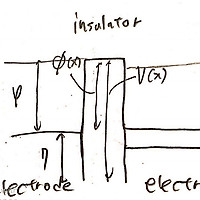 insulator
φ(x)
V(x)
φ
η
electrode
electr